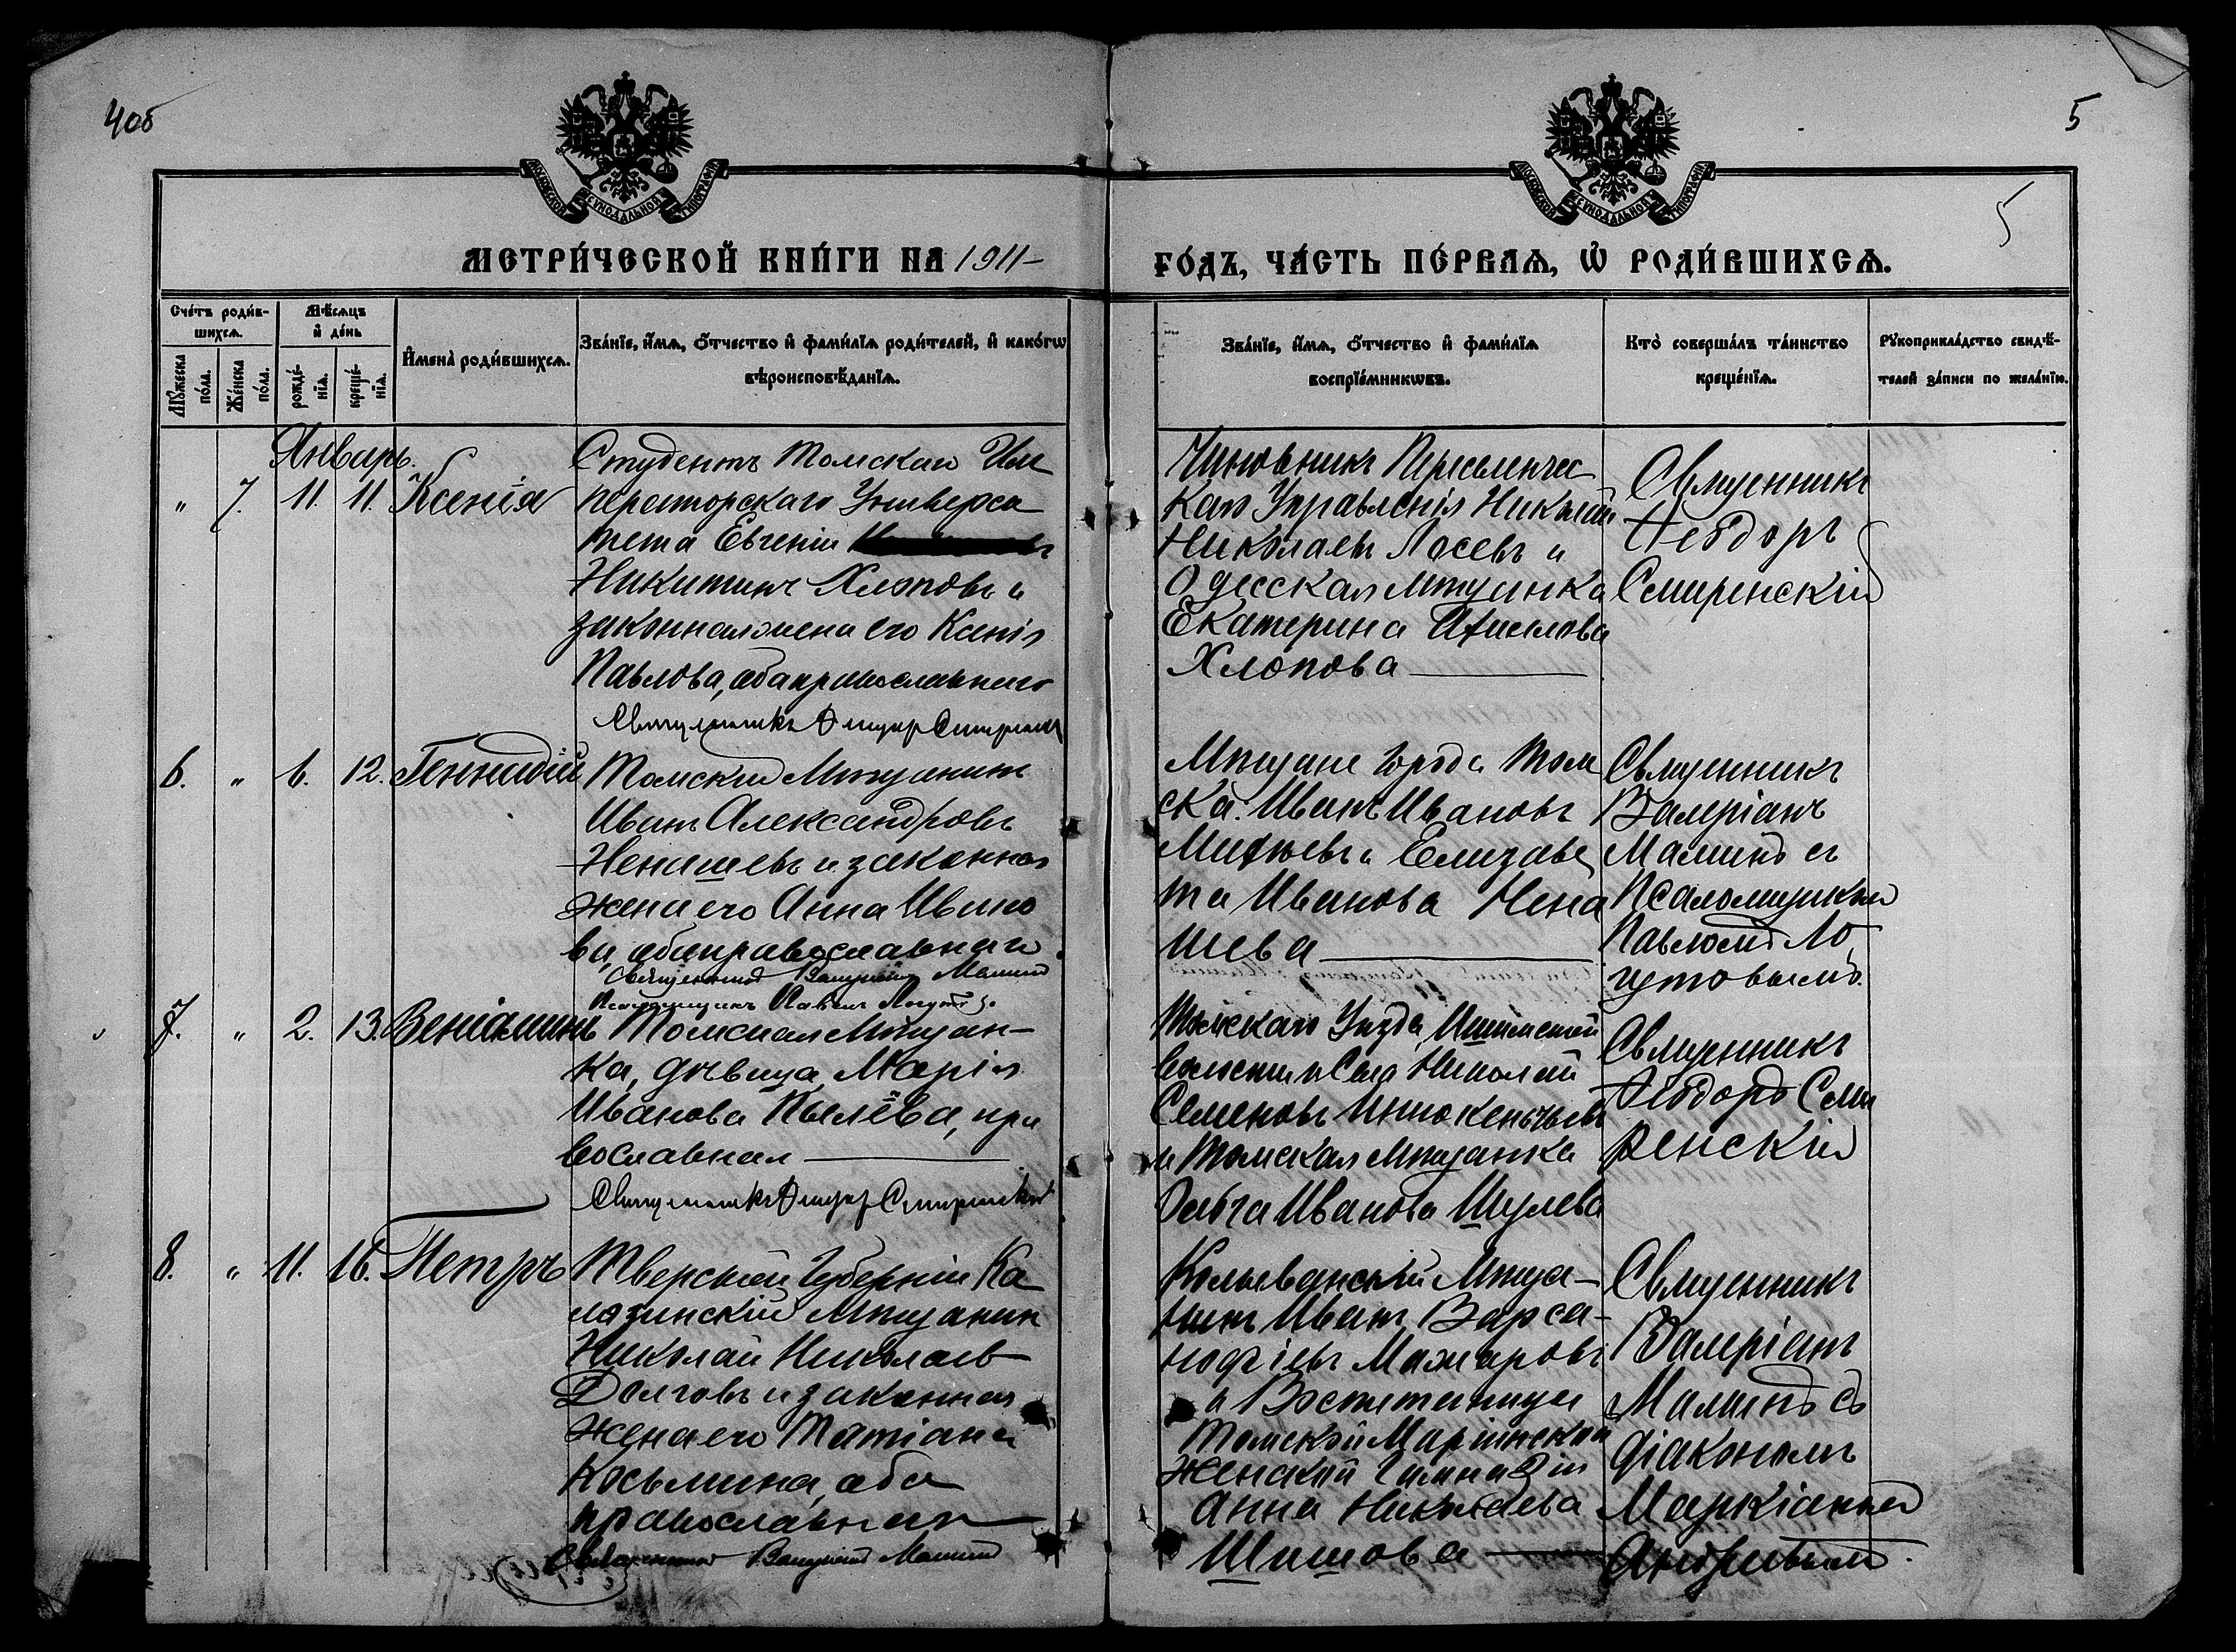 4об
5
5
МОСКОВСКОЙ СѴНОДАЛЬНОЙ ТИПОГРАФІИ
МОСКОВСКОЙ СѴНОДАЛЬНОЙ ТИПОГРАФІИ
МЕТРИ́ЧЕСКОЙ КНИ́ГИ НА 1911-
ГО́ДЪ, ЧА́СТЬ ПЕ́РВАѦ, Ѡ РОДИ́ВШИХСѦ.
Сче́тъ роди́в-
шихсѧ.
Мѣ́сѧцъ
и҆ де́нь
Мꙋ́жеска
по́ла.
Же́нска
по́ла.
рожде́-
нїѧ.
креще́-
нїѧ.
И҆мена̀ роди́вшихсѧ.
Зва́нїе, и҆́мѧ, ѻ҆́тчество и҆ фами́лїѧ роди́телей, и҆ како́гѡ
вѣроисповѣ́данїѧ.
Зва́нїе, и҆́мѧ, ѻ҆́тчество и҆ фами́лїѧ
воспрїе́мникѡвъ.
Кто̀ соверша́лъ та́инство
креще́нїѧ.
Рꙋкоприкла́дство свидѣ́-
телей за́писи по жела́нїю.
Январь.
" 7. 11. 11. Ксенія
Студентъ Томскаго Им
ператорскаго Универси
тета Евгеній
Никитинъ Хлоповъ и
законная жена его Ксенія
Павлова, оба православнаго
Священникъ Ѳеодоръ Смиренскій
Чиновникъ Переселенчес
каго Управленія Николай
Николаевъ Лосевъ и
Одесская мѣщанка
Екатерина
Хлопова
Священникъ
Ѳеодоръ
Смиренскій
6. " 6. 12. Геннадій
Томскій Мѣщанинъ
Иванъ Александровъ
Ненашевъ и законная
жена его Анна Ивано
ва, оба православнаго
Священникъ Валеріанъ Маминъ
Псаломщикъ Павелъ
Мѣщане города Том
ска: Иванъ Ивановъ
и Елизаве
та Иванова Нена
шева
Священникъ
Валеріанъ
Маминъ съ
Псаломщикомъ
Павломъ Ло
гутовымъ.
7. " 2. 13. Веніаминъ
Томская Мѣщан-
ка, дѣвица Марія
Иванова Пылёва, пра
вославная
Священникъ Ѳеодоръ Смиренскій
Томскаго Уѣзда, Ишимской
волости и села Николай
Семеновъ Иннокентьевъ
и Томская мѣщанка
Ольга Иванова Шулева
Священникъ
Ѳеодоръ Сми
ренскій
8. " 11. 16. Петръ
Тверской Губерніи Ка
лязинскій Мѣщанин
Николай Николаев
Долговъ и законная
жена его Татіана
Косьмина, оба
православнаго
Священникъ Валеріанъ Маминъ
Колыванскій Мѣща-
нинъ Иванъ Варса-
нофіевъ Макаровъ
и Воспитаница
Томской Маріинской
Женской Гимназіи
Анна Николаева
Шишова
Священникъ
Валеріанъ
Маминъ съ
діакономъ
Маркіаномъ
Андреевымъ.